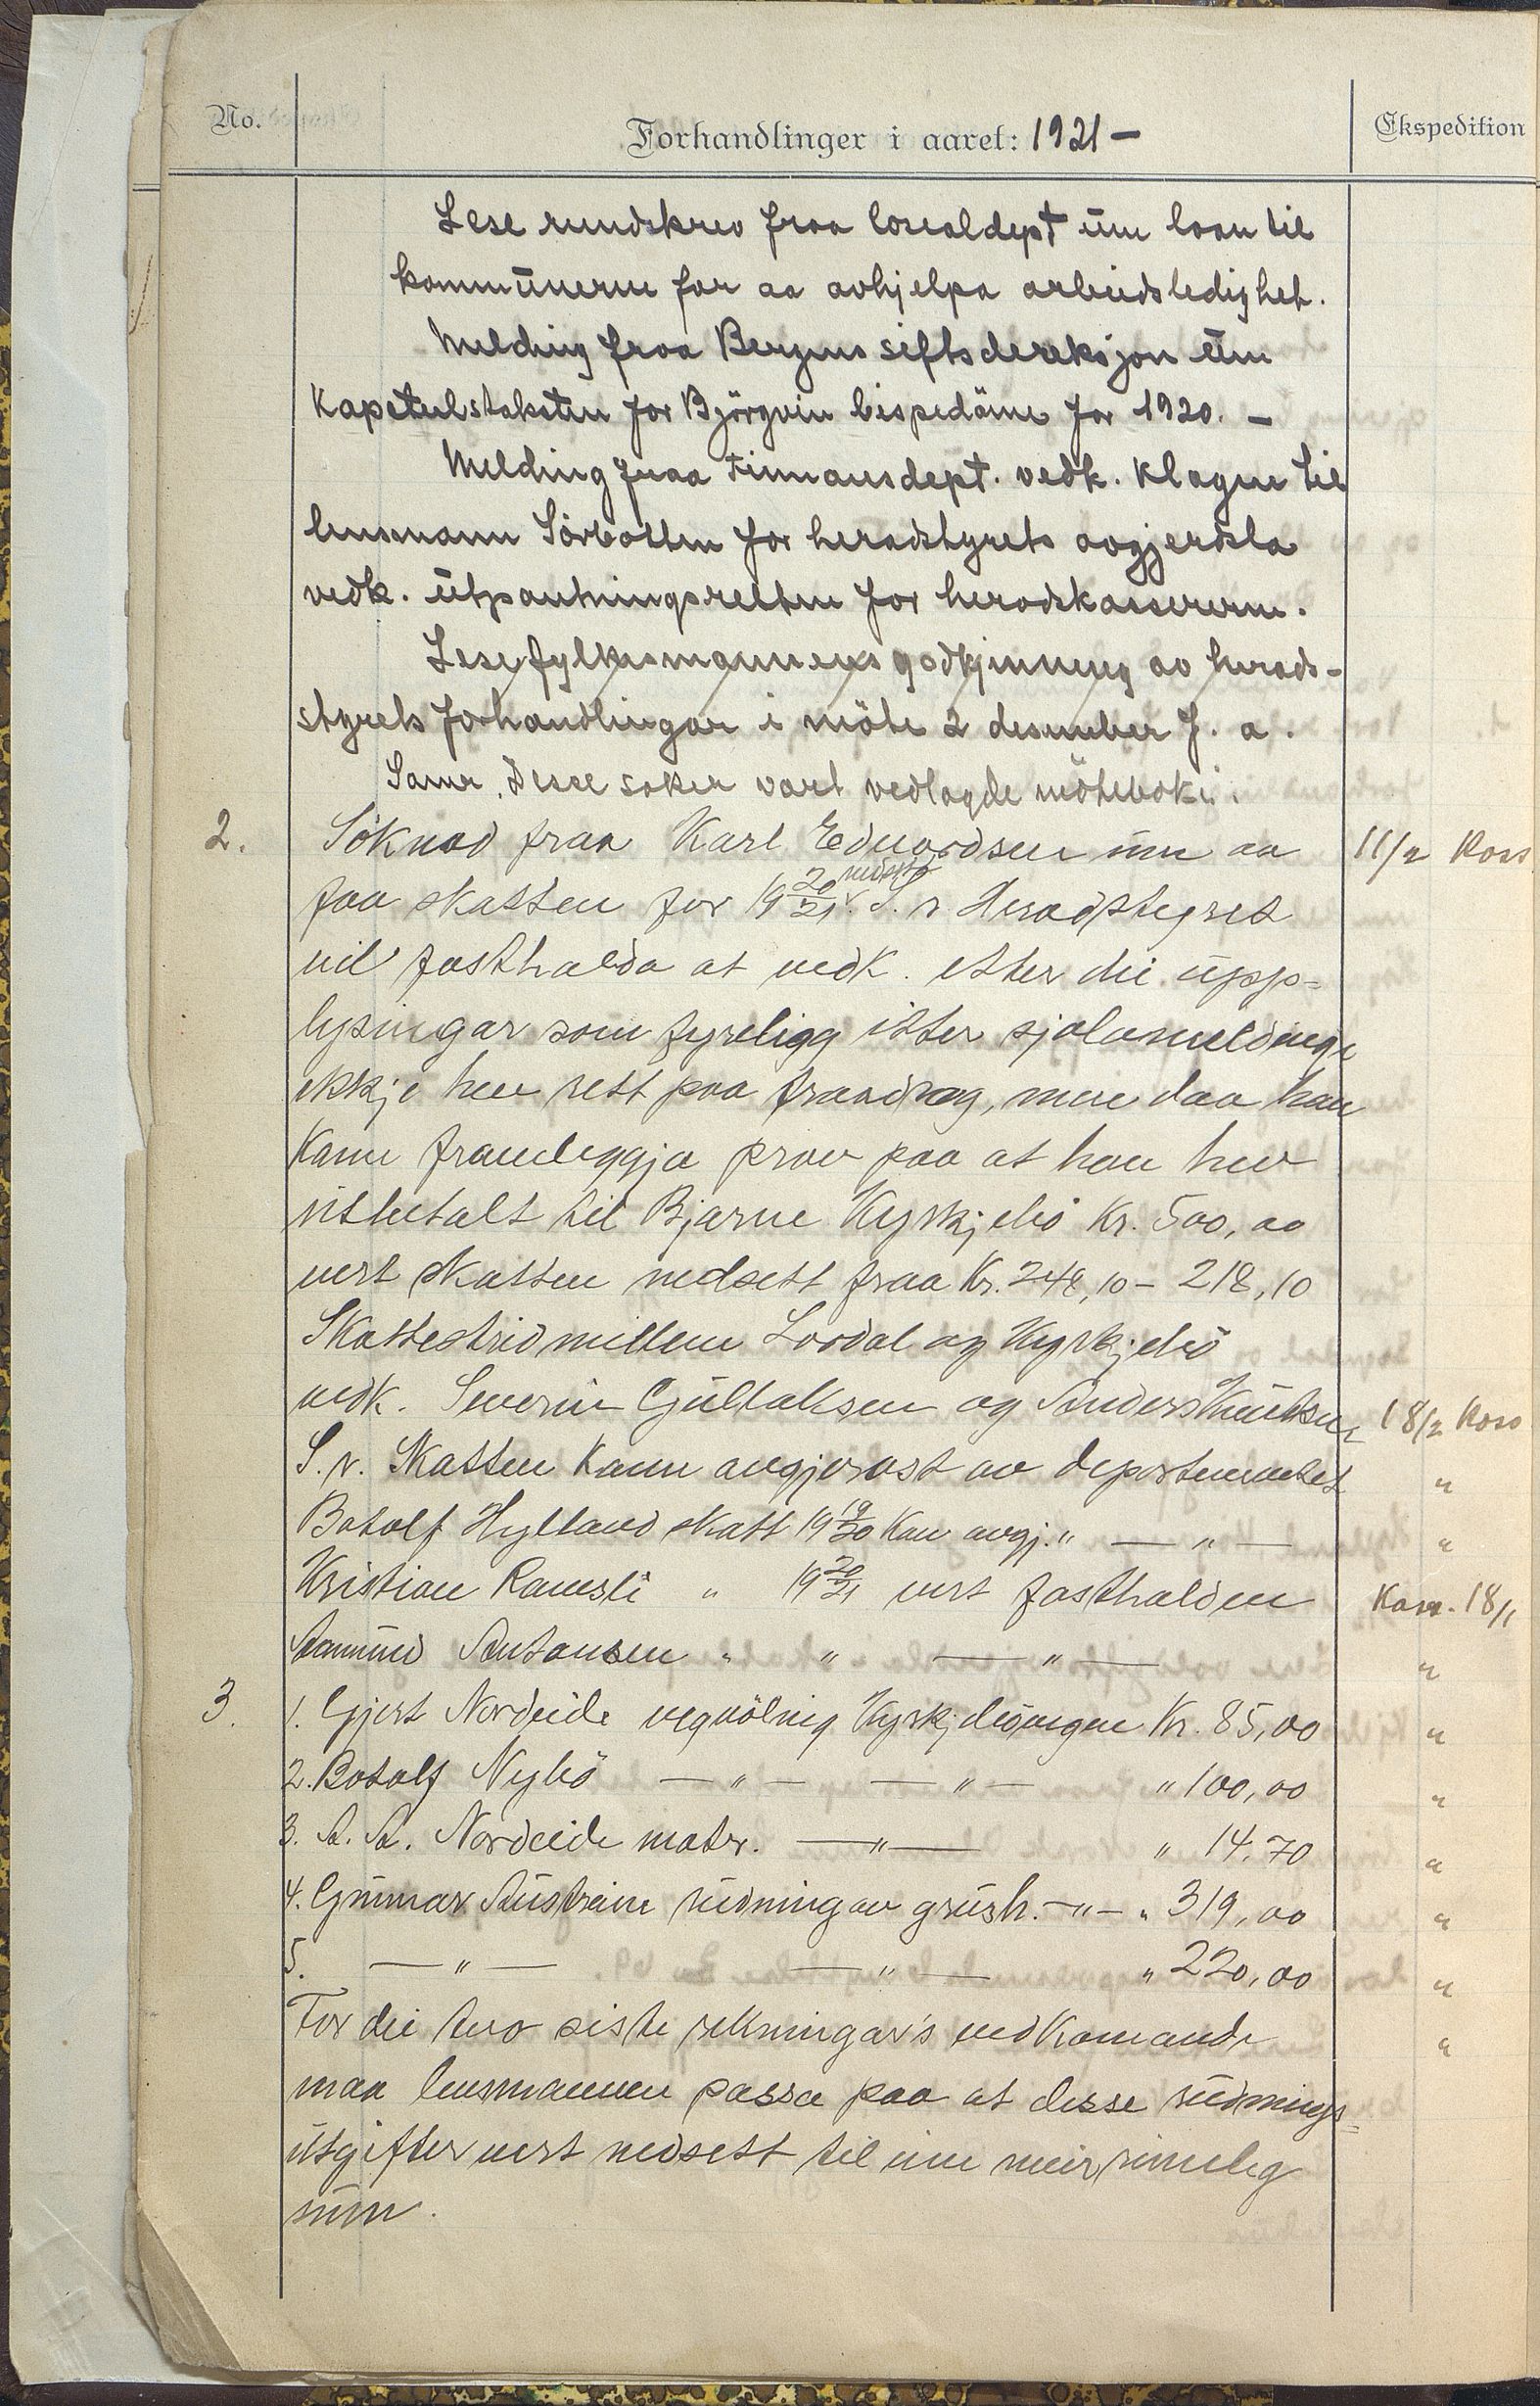 No. Forhandlinger i aaret: 1921 – Ekspedition
Lese rundskrev fraa sosialdept üm laan til
kommünerne for aa avhjelpa arbeidsledighet.
Melding fraa Bergens siftsdereksjon üm
Kapetulstaksten for Björgvin bispedöme for 1920. –
Melding fraa Finnansdept. vedk. klagen til
lensmann Sörbotten for heradstyrets avgjerdsla
vedk. ütpantningsretten for heradskassererne.
Lese fylkesmannens godkjenning av herads-
styrets forhandlingar i möte 2 desember f. a.
Same. Desse saker vart vedlagde möteboki.
2. Söknad fraa Karl Edvardsen üm aa 11/2 Kass
faa skatten for 19 20/21 nedsett. S. v. Heradstyret
vil fasthalda at vedk. etter dei üpp=
lysingar som fyreligg etter sjølvmeldinga
ikkje hev rett paa fraadrag, men daa han
kann framleggja prov paa at han hev
ütbetalt til Bjarne Kyrkjebö Kr. 500,00
vert skatten nedsett fraa Kr. 248,10 – 218,10
Skattestrid millem Lavdal og Kyrkjebö
vedk. Severin Gültaksen og Anders Knütsen 18/2 Kass
S. v. Skatten kann avgjerast av departementet "
Botolf Hylland skatt 19 19/20 Kan avgj. " — " — "
Kristian Ramsli " 19 20/21 vert fasthalden Kass. 18/1
Aamünd Antonsen " " — " — "
3. 1. Gjert Nordeide vegvöling Kyrkjebövegen Kr. 85,00 "
2. Botolf Nybö — " — — " — " 100,00 "
3. A. A. Nordeide matr. — " — " 14,70 "
4. Günnar Aüstreim rüdning av grüsh. — " — " 319,00 "
5. — " — — " — " 220,00 "
For dei tvo siste rekningar's vedkomande "
maa lensmannen passa paa at desse rüdnings=
ütgifter vert nedsett til ein meir rimeleg
süm.